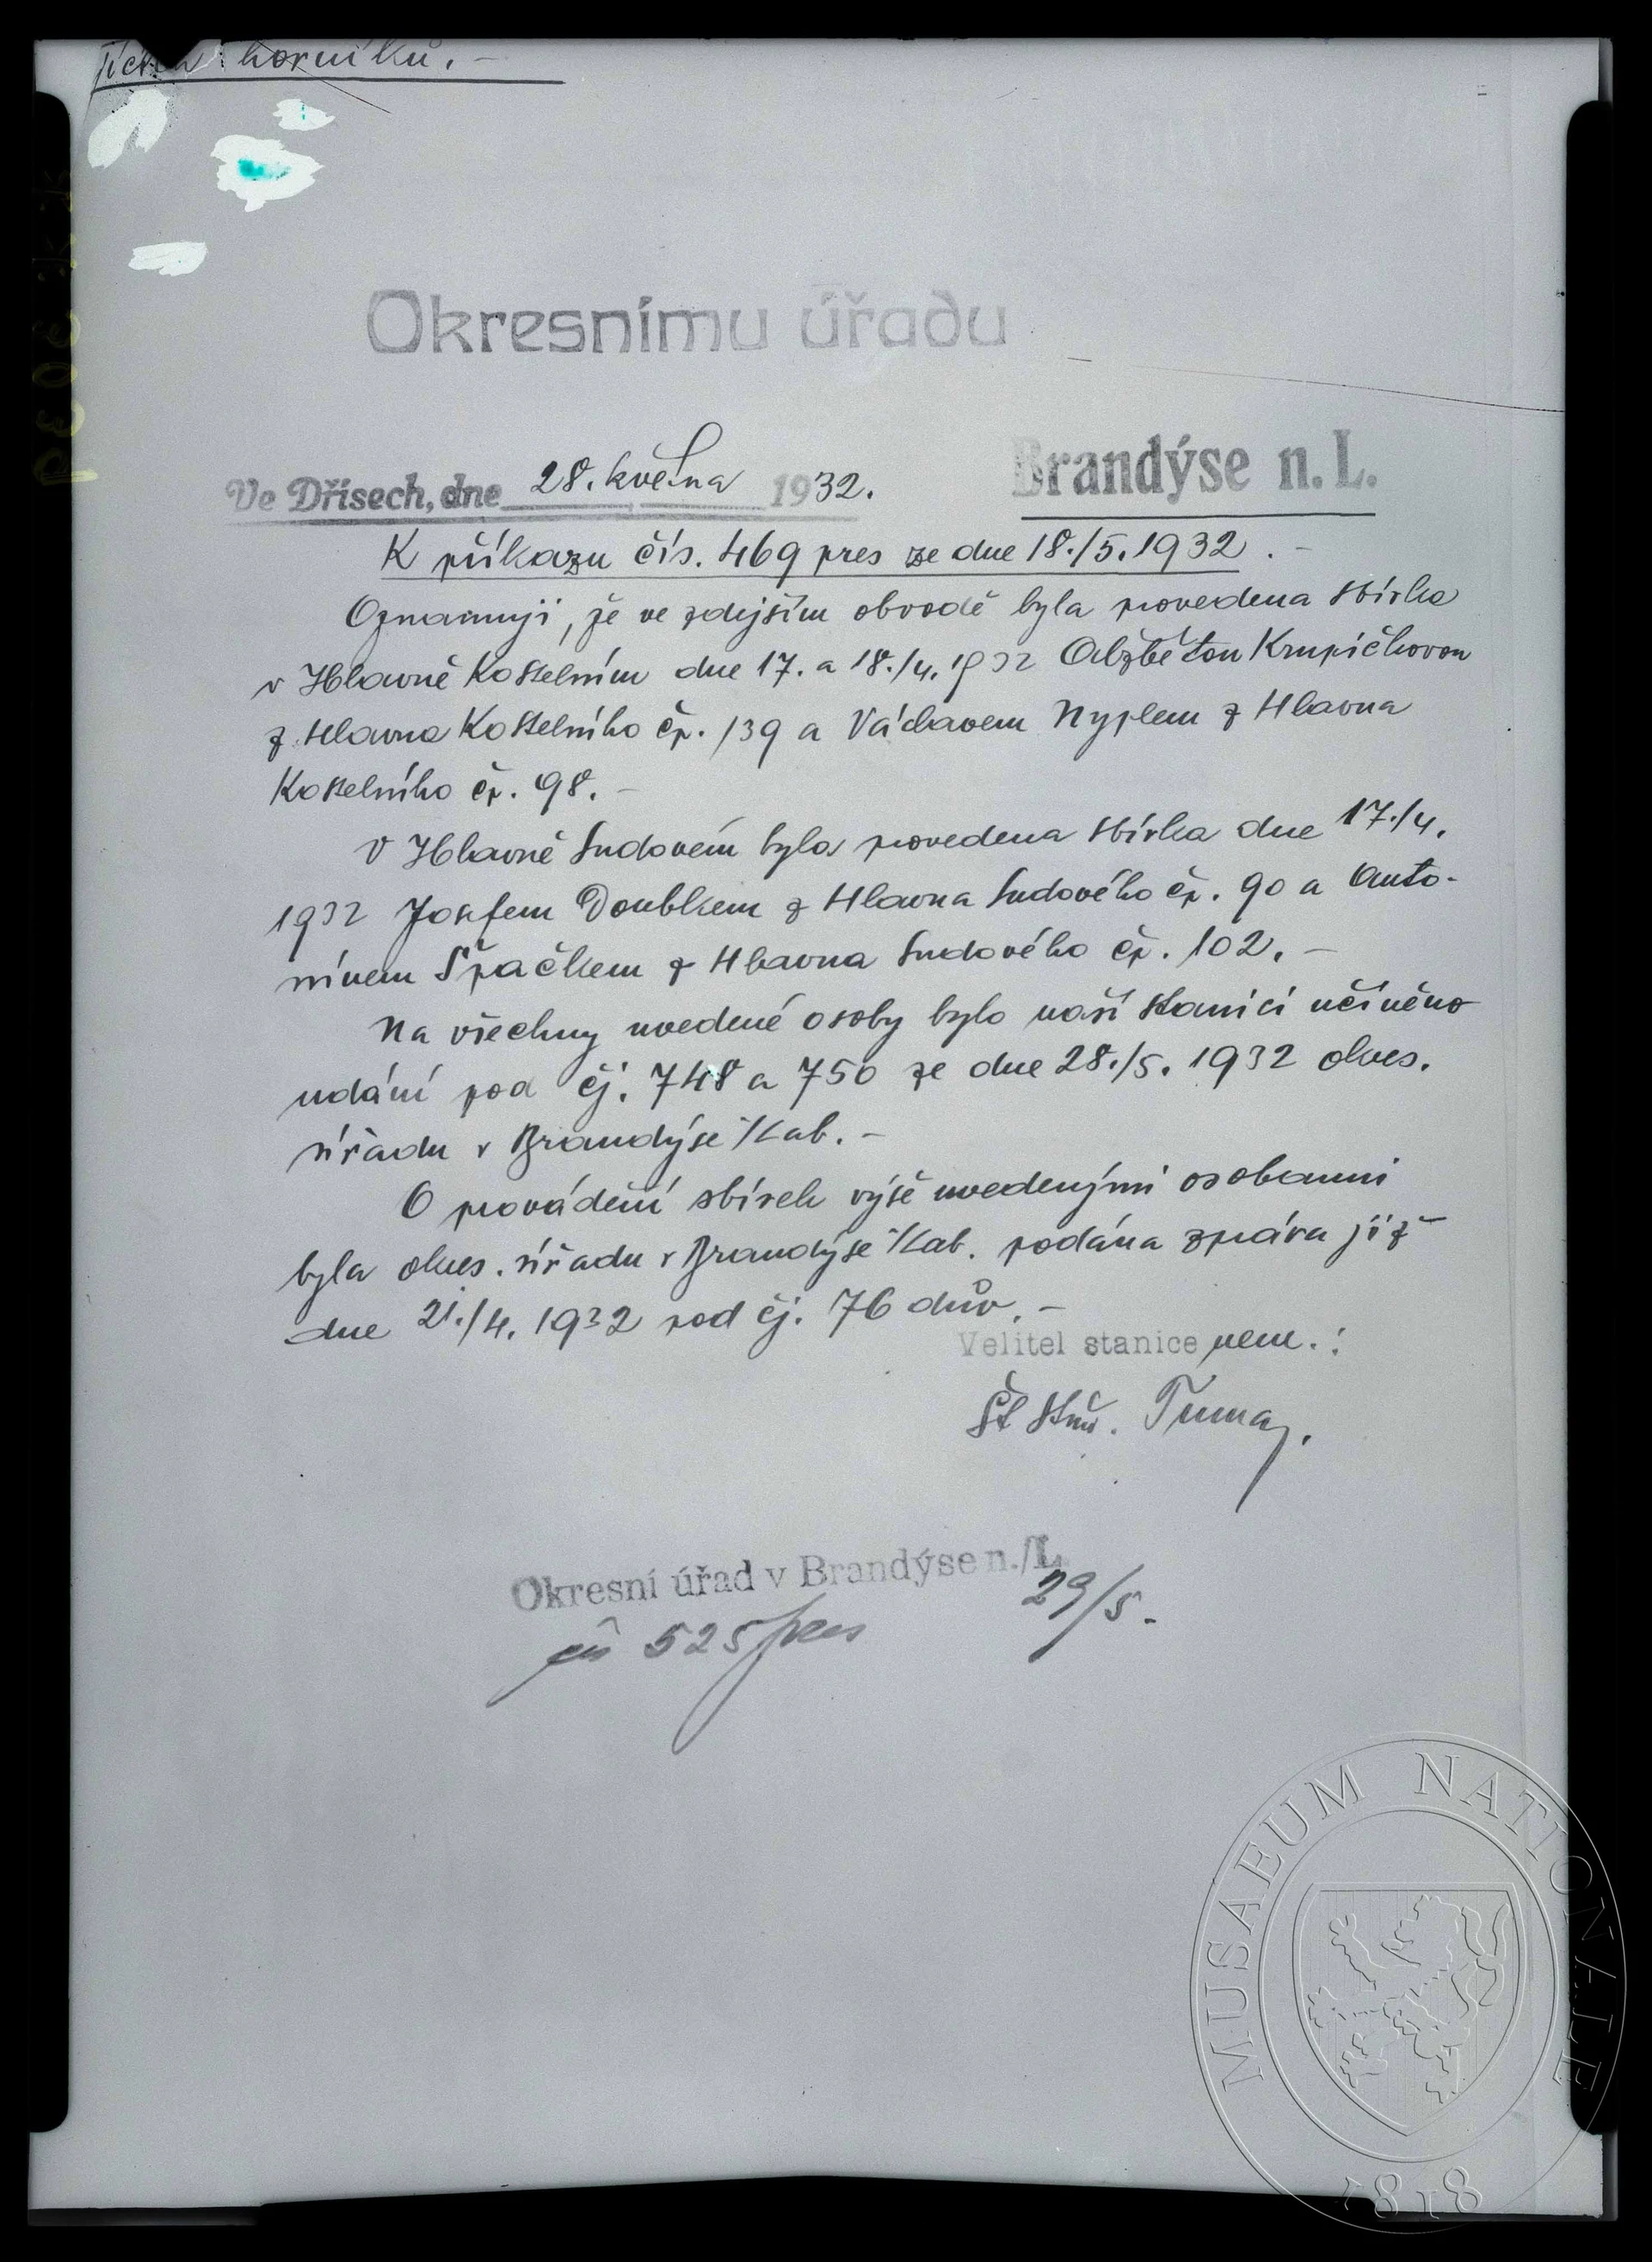 horníků. -
Okresnímu úřadu
Ve Dřísech, dne 28. května 1932.
Brandýse n. L.
K příkazu čís. 469 pres ze dne 18./5. 1932. -
Oznamuji, že ve zdejším obvodě byla provedena sbírka
v Hlavně Kostelním dne 17. a 18./4. 1932 Alžbětou Krupičkovou
z Hlavna Kostelního čp. 139 a Václavem Nyplem z Hlavna
Kostelního čp. 98. -
V Hlavně Sudovém byla provedena sbírka dne 17./4.
1932 Josefem Doublkem z Hlavna Sudového čp. 90 a Anto-
nínem Špačkem z Hlavna Sudového čp. 102. -
Na všechny uvedené osoby bylo naší stanicí učiněno
udání pod čj. 748 a 750 ze dne 28./5. 1932 okres.
úřadu v Brandýse n/Lab. -
O provádění sbírek výše uvedenými osobami
byla okres. úřadu v Brandýse n/Lab. podána zpráva již
dne 21./4. 1932 pod čj. 76 dův. -
Velitel stanice nem. :
Št stm. Tuma,
Okresní úřad v Brandýse n./L.
29/5. -
čís 525 pres
MUSAEUM NATIONALE
1818